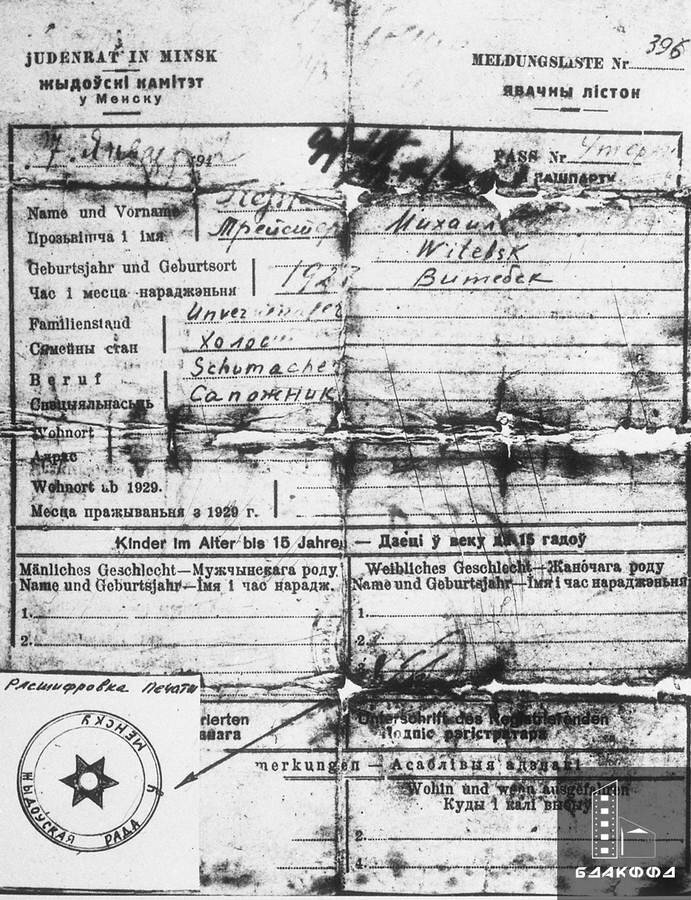 JUDENRAT IN MINSK
ЖЫДОЎСКІ КАМІТЭТ
у Менску
MELDUNGSLISTE Nr 396
ЯВАЧНЫ ЛІСТОК
7. Январ 194
PASS Nr
ПАШПАРТУ
Name und Vorname
Прозьвішча і імя Трейстер Михаил
Geburtsjahr und Geburtsort 1927 Witebsk
Час і месца нараджэньня Витебск
Familienstand
Сямейны стан Холос
Beruf Schumacher
Спэцыяльнасьць Сапожник
Wohnort
Адрас
Wohnort ab 1929.
Месца пражываньня з 1929 г.
Kinder im Alter bis 15 Jahre — Дзеці ў веку да 15 гадоў
Mänliches Geschlecht—Мужчынскага роду
Name und Geburtsjahr—Імя і час нарадж.
1.
2.
Weibliches Geschlecht—Жаночага роду
Name und Geburtsjahr—Імя і час нараджэньня
1
2
Расшифровка печати
ЖЫДОЎСКАЯ РАДА Ў МЕНСКУ
rierten
Unterschrift des Registrierenden
Подпіс рэгістратара
merkungen — Асаблівыя адзнакі
Wohin und wenn ausgefahren
Куды і калі выбыў
2.
4.
БДАКФФД